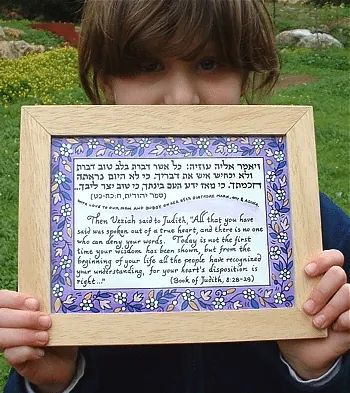 ויאמר אליה עוזיה: כל אשר דברת בלב טוב דברת
ולא יכחיש איש את דבריך. כי לא היום נראתה
חכמתך. כי מאז ידע העם בינתך, כי טוב יצר ליבך..
(ספר יהודית, ח:כח-כט)
WITH LOVE TO OUR MOM AND BUBBY ON HER 85TH BIRTHDAY MARK, &
Then Uzziah said to Judith, "All that you have
said was spoken out of a true heart, and there is no
one who can deny your words. Today is not the first
time your wisdom has been shown, but from the
beginning of your life all the people have recognized
your understanding, for your heart's disposition is
right..." (Book of Judith, 8:28-29)